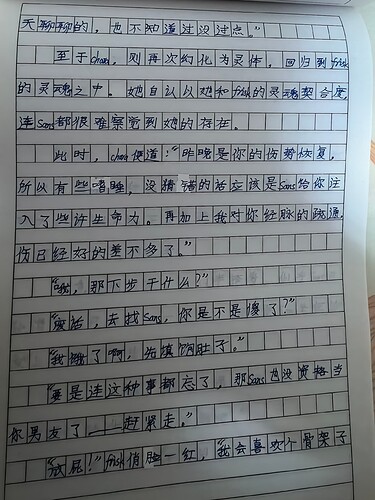 天聊聊的，也不知道过没过点。”
至于chara，则再次幻化为灵体，回归到frisk
的灵魂之中。她自认以她和frisk的灵魂契合度，
连Sans都很难察觉到她的存在。
此时，chara便道：“昨晚是你的伤势恢复，
所以有些嗜睡，没猜错的话应该是Sans给你注
入了些许生命力。再加上我对你经脉的疏通，
伤已经好的差不多了。”
“哦，那下步干什么？”
“废话，去找Sans，你是不是傻了？”
“我饿了啊，先填饱肚子。”
“要是连这种事都忘了，那Sans也没资格当
你男友了——赶紧走。”
“放屁！”frisk俏脸一红，“我会喜欢个骨架子